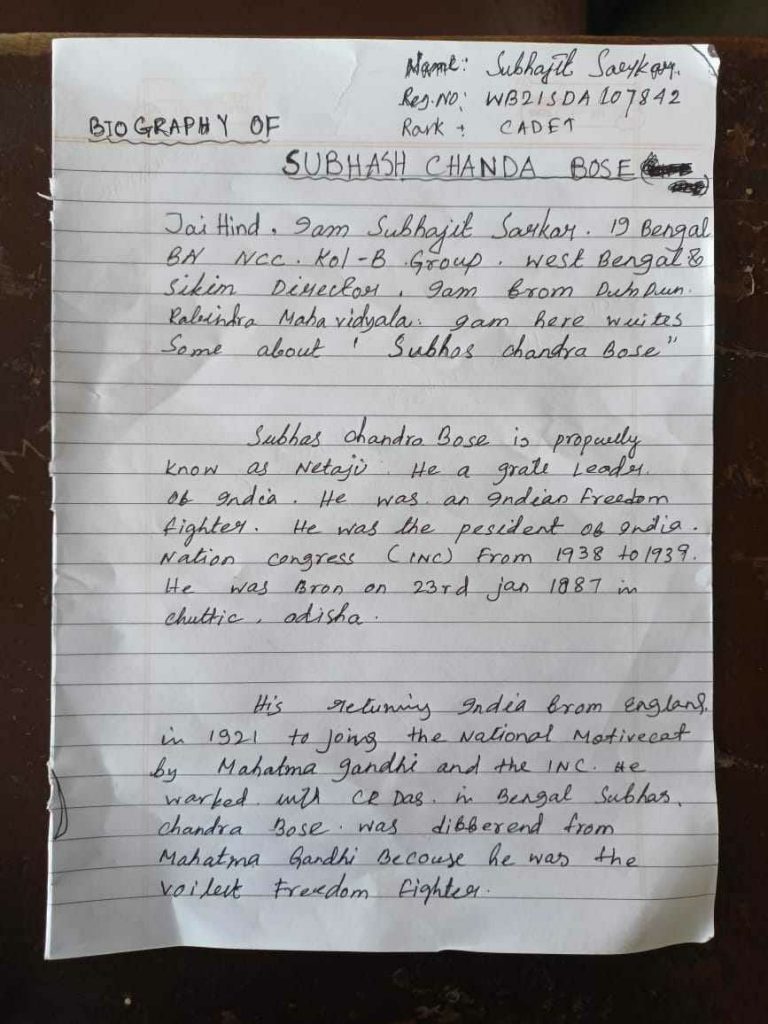 Name: Subhajit Sarkar.
Reg.NO: WB21SDA107842
Rank : CADET
BIOGRAPHY OF
SUBHASH CHANDA BOSE
Jai Hind. Iam Subhajit Sarkar. 19 Bengal
BN NCC. Kol-B Group. West Bengal &
Sikim Director. Iam from Dum Dum.
Rabindra Maha vidyala. Iam here wuites
Some about ' Subhas chandra Bose"
Subhas chandra Bose is propuelly
know as Netaji. He a grate Leader
Of India. He was an Indian Freedom
fighter. He was the pesident of India.
Nation congress (INC) From 1938 to 1939.
He was Bron on 23rd jan 1887 in
chuttic, odisha.
His retuning India from England,
in 1921 to joing the National Motivecat
by Mahatma Gandhi and the INC. He
warked with CR Das. in Bengal Subhas.
chandra Bose. was differend from
Mahatma Gandhi Becouse he was the
voilect Freedom Fighter.